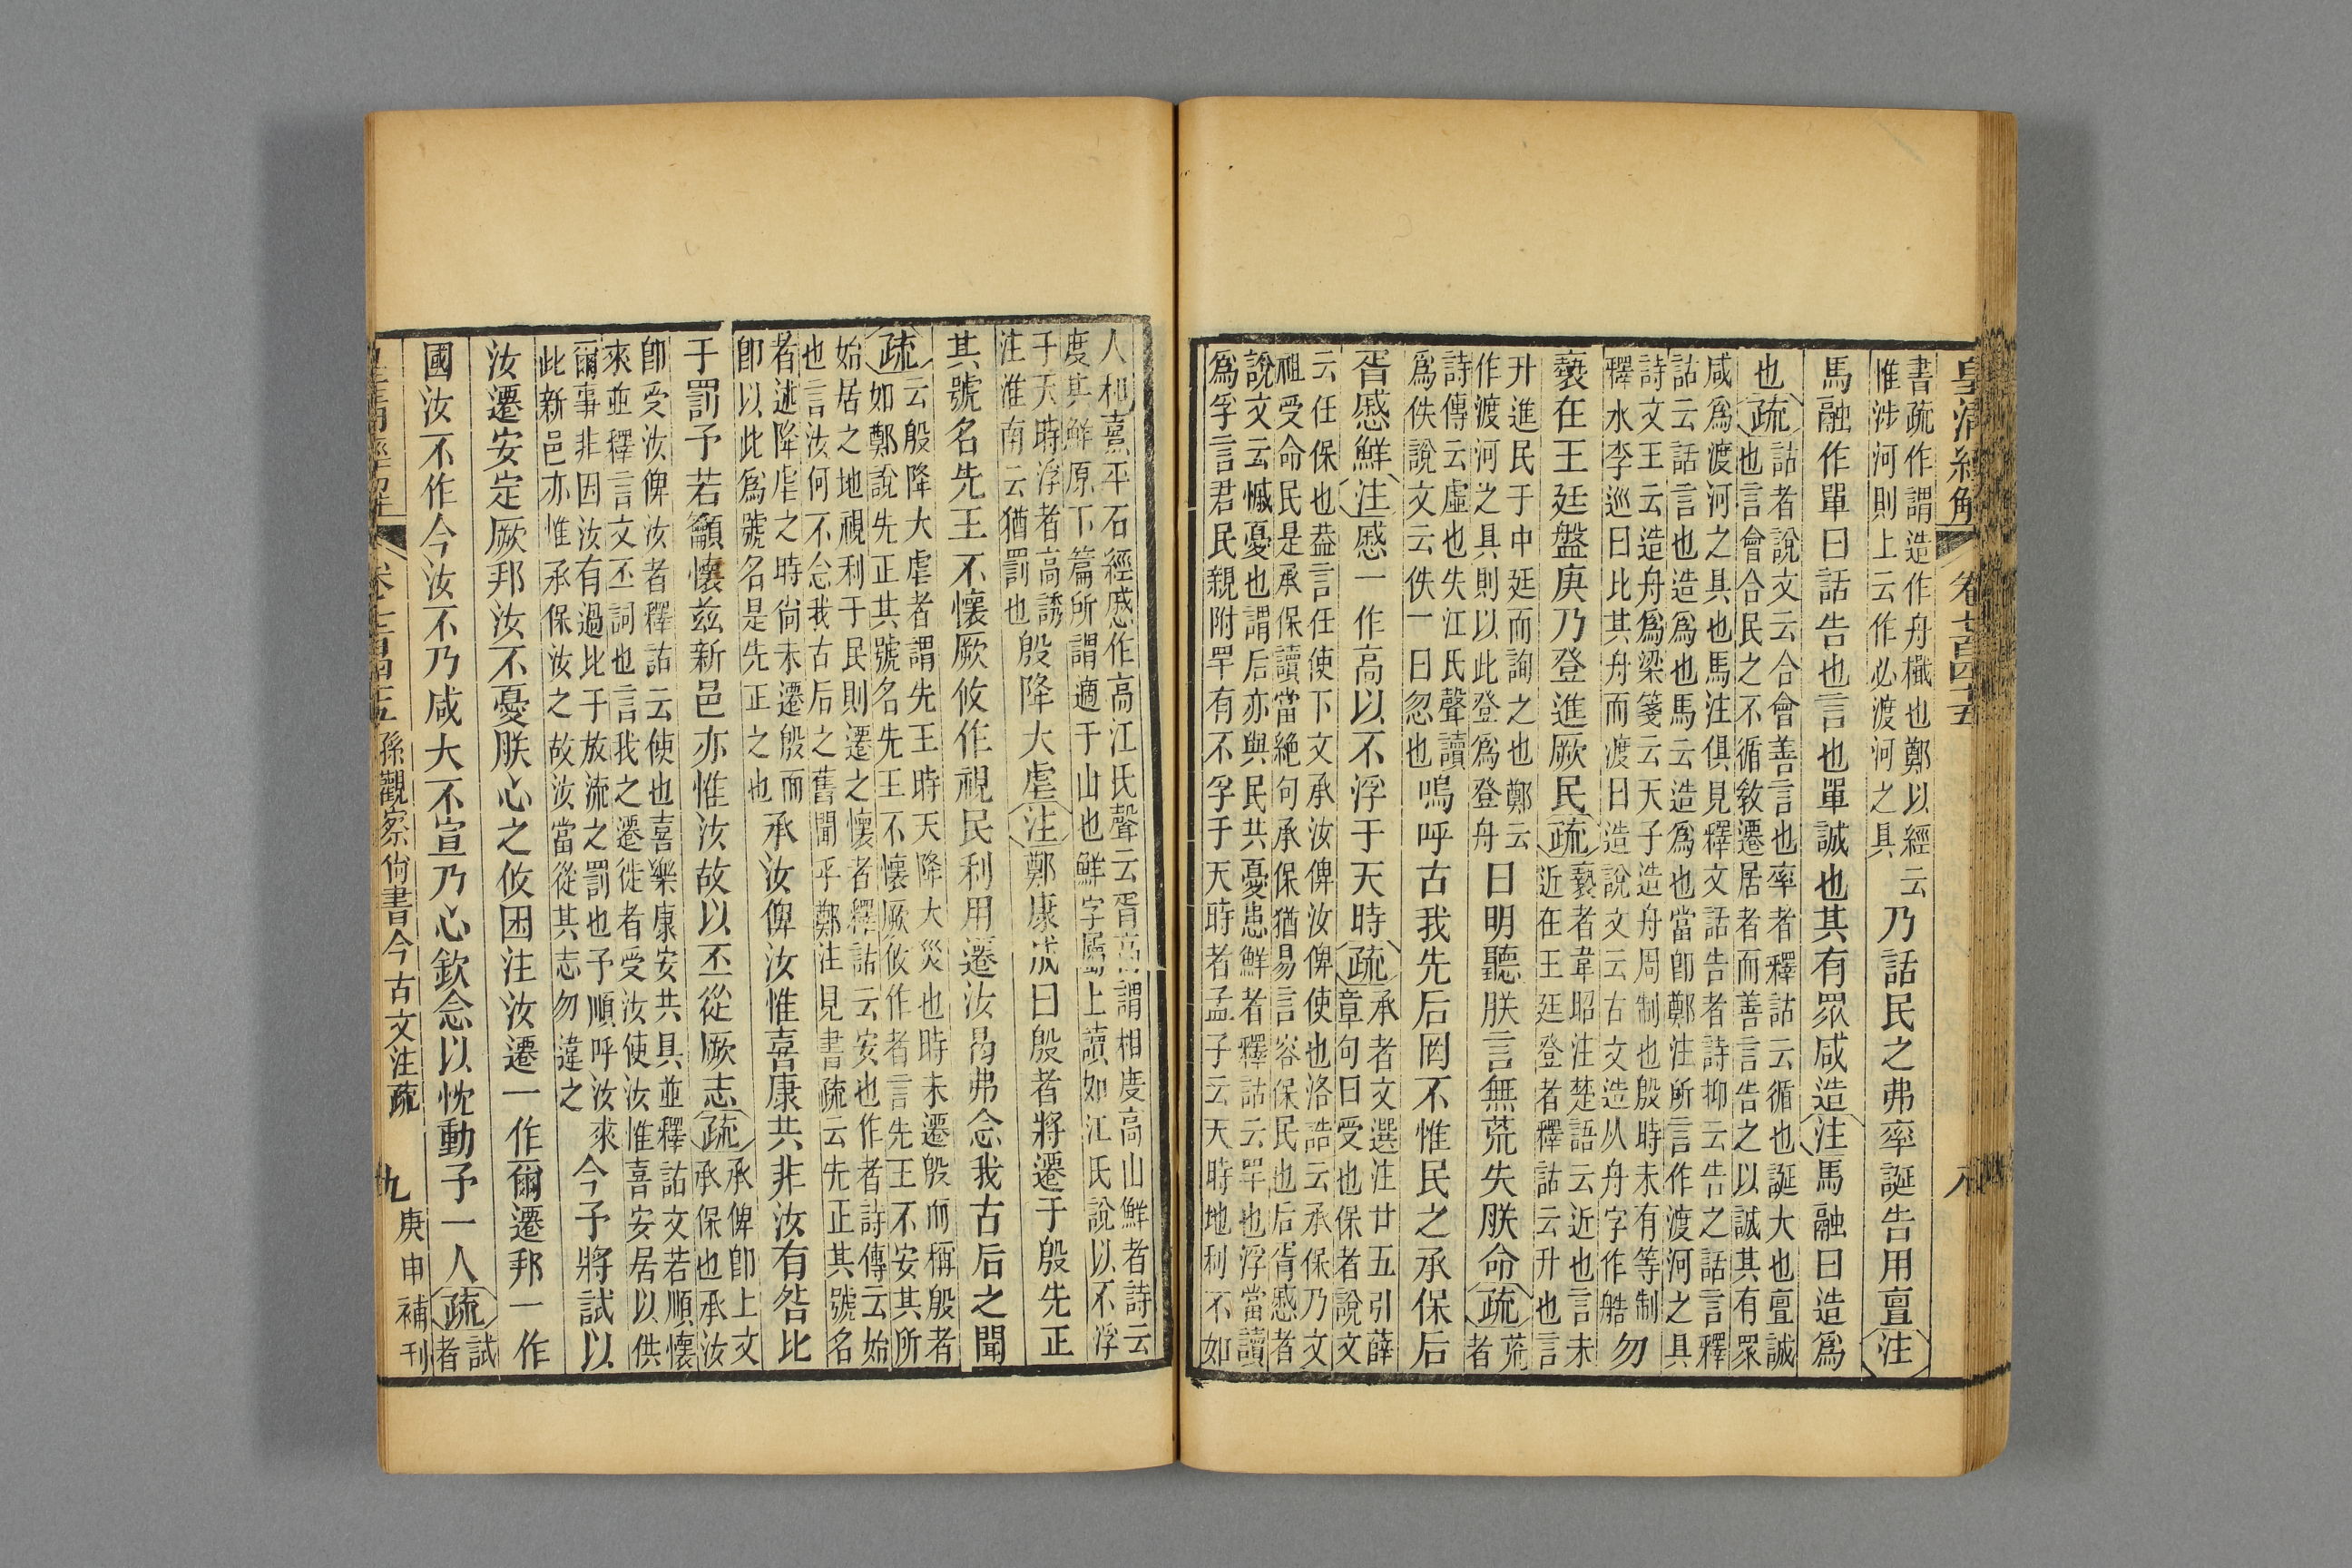 皇清經解 卷七百四十五 八
書疏作謂造作舟檥也鄭以經云
惟涉河則上云作必渡河之具
乃話民之弗率誕告用亶注
馬融作單曰話告也言也單誠也其有眾咸造注馬融曰造爲
也疏
話者說文云合會善言也率者釋詁云循也誕大也亶誠
也言會合民之不循敎遷居者而善言告之以誠其有眾
咸爲渡河之具也馬注俱見釋文話告者詩抑云告之話言釋
詁云話言也造爲也馬云造爲也當卽鄭注所言作渡河之具
詩文王云造舟爲梁箋云天子造舟周制也殷時未有等制
釋水李巡曰比其舟而渡曰造說文云古文造从舟字作艁
勿
褻在王廷盤庚乃登進厥民疏
褻者韋昭注楚語云近也言未
近在王廷登者釋詁云升也言
升進民于中廷而詢之也鄭云
作渡河之具則以此登爲登舟
曰明聽朕言無荒失朕命疏
荒
者
詩傳云虛也失江氏聲讀
爲佚說文云佚一曰忽也
嗚呼古我先后罔不惟民之承保后
胥慼鮮注慼一作高以不浮于天時疏
承者文選注廿五引薛
章句曰受也保者說文
云任保也葢言任使下文承汝俾汝俾使也洛誥云承保乃文
祖受命民是承保讀當絶句承保猶易言容保民也后胥慼者
說文云慽憂也謂后亦與民共憂患鮮者釋詁云罕也浮當讀
爲孚言君民親附罕有不孚于天時者孟子云天時地利不如
人和熹平石經慼作高江氏聲云胥高謂相度高山鮮者詩云
度其鮮原下篇所謂適于山也鮮字屬上讀如江氏說以不浮
于天時浮者高誘
注淮南云猶罰也
殷降大虐注鄭康成曰殷者將遷于殷先正
其號名先王不懷厥攸作視民利用遷汝曷弗念我古后之聞
疏
云殷降大虐者謂先王時天降大災也時未遷殷而稱殷者
如鄭說先正其號名先王不懷厥攸作者言先王不安其所
始居之地視利于民則遷之懷者釋詁云安也作者詩傳云始
也言汝何不念我古后之舊聞乎鄭注見書疏云先正其號名
者述降虐之時尙未遷殷而
卽以此爲號名是先正之也
承汝俾汝惟喜康共非汝有咎比
于罰予若籲懷茲新邑亦惟汝故以丕從厥志疏
承俾卽上文
承保也承汝
卽受汝俾汝者釋詁云使也喜樂康安共具並釋詁文若順懷
來並釋言文丕詞也言我之遷徙者受汝使汝惟喜安居以供
爾事非因汝有過比于放流之罰也予順呼汝來
此新邑亦惟承保汝之故汝當從其志勿違之
今予將試以
汝遷安定厥邦汝不憂朕心之攸困注汝遷一作爾遷邦一作
國汝不作今汝不乃咸大不宣乃心欽念以忱動予一人疏
試
者
卷七百四十五 孫觀察尙書今古文注疏 九 庚申補刊